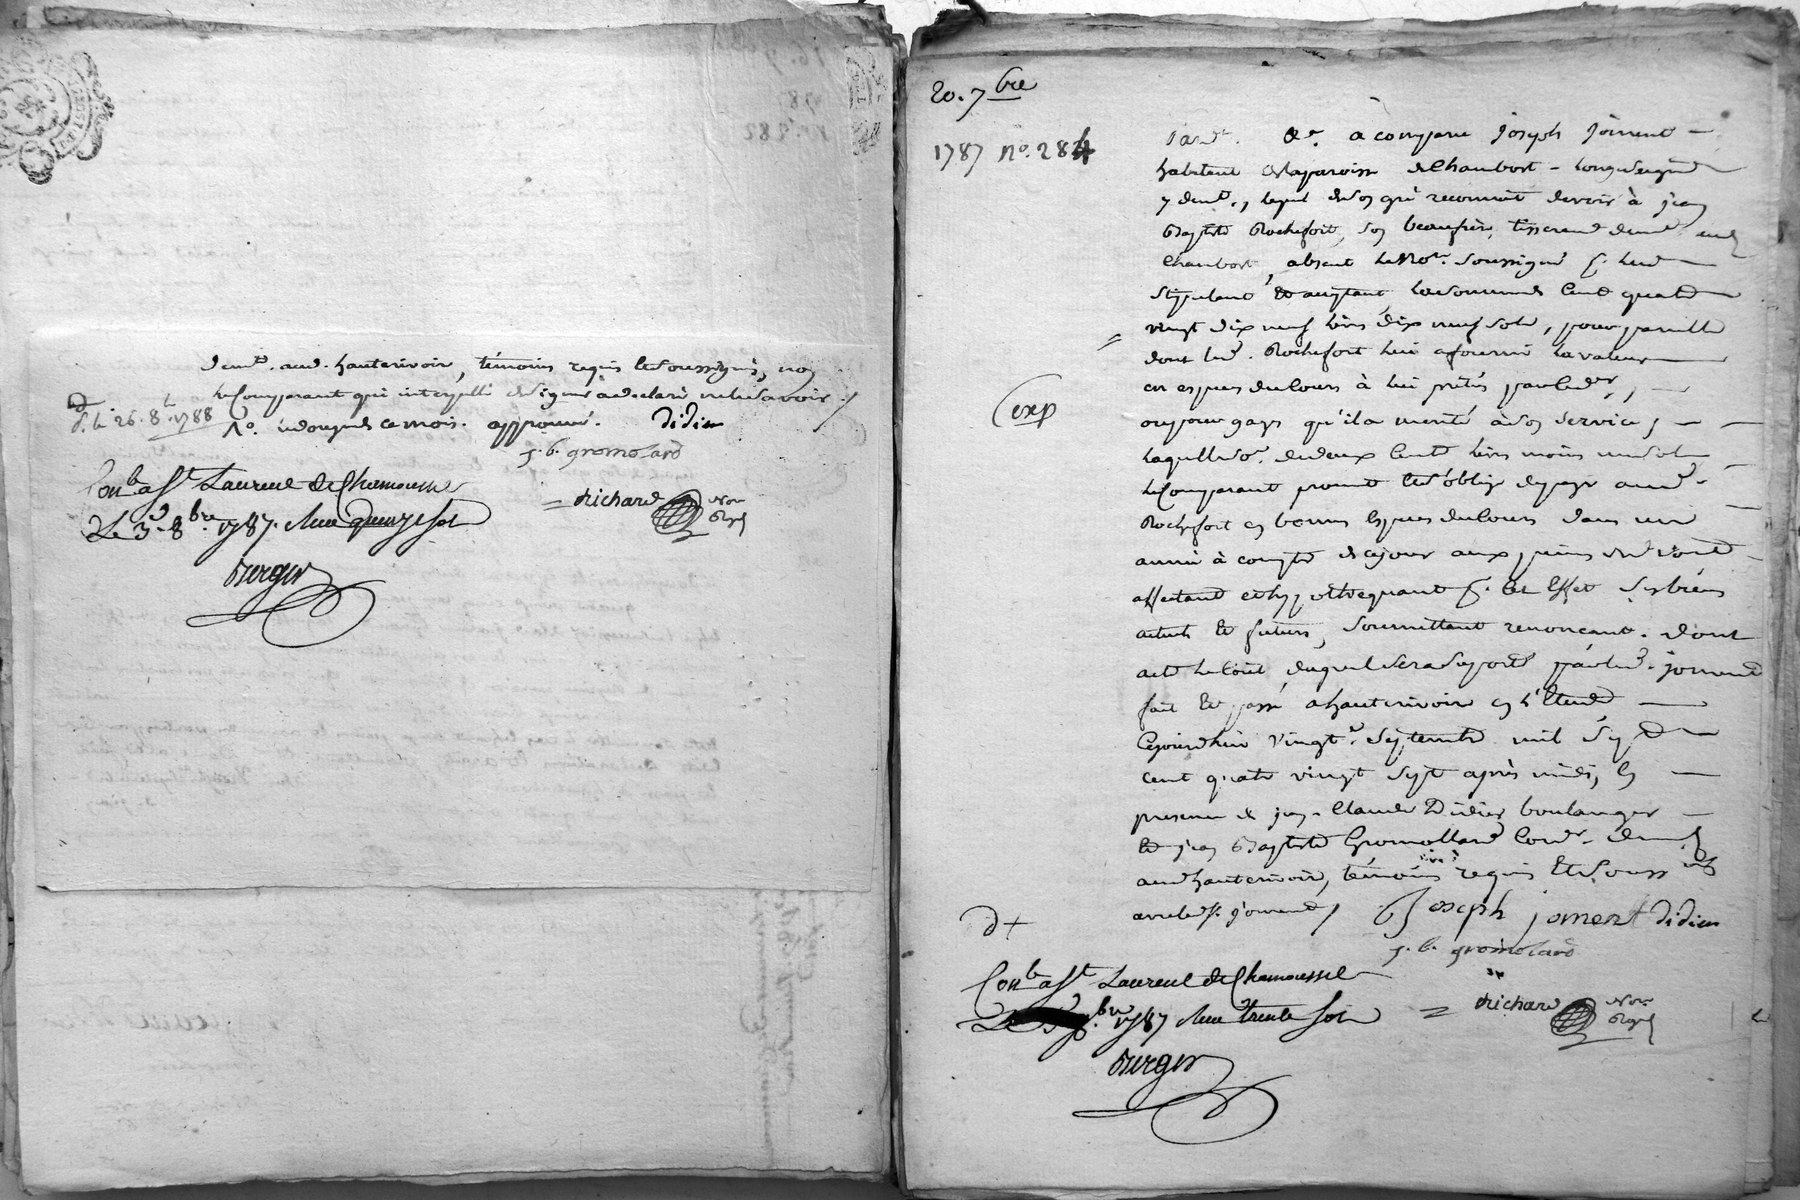 demt. aud. hauterivoir, témoins requis et soussignés, non
le Comparant qui interpellé de signer a declaré ne le savoir /
d. le 26. 8bre 1788
No. ce mois. approuvé. didier
j. b. gromolard
Conlé a St. Laurent de Chamousset
Le 3. 8bre. 1787. Reçu quinze sols
= Richard Nore Royal
Berger
20. 7bre
1787 no. 284
Pardt. &a. a comparu joseph joment
habitant de la paroisse de Chambost - Longuesaigne
y demt., lequel de son gré reconnait devoir à jean
Baptiste Rochefort, son beaufrère, tisserand demt. aud.
Chambost, absent le Nore. soussigné p. lui
stipulant et acceptant, la somme de Cent quatre
vingt dix neuf livres dix neuf sols, pour pareille
dont led. Rochefort lui a fourni la valeur
en espèces du cours à lui prêtés par led.,
exp
ou pour gages qu'il a merité à son service,
laquelle so. de deux Cent livres moins un sol
le Comparant promet et s'oblige de payer aud.
Rochefort en bonnes espèces du cours dans une
année à compter de ce jour aux peines de droit
affectant et hypothequant p. cet Effet ses biens
actuels et futurs, soumettant renonçant. dont
acte le coût duquel sera suporté par led. joment
fait et passé a hauterivoir en l'Etude
Cejourdhui vingt. Septembre mil Sept
cent quatre vingt sept après midi, En
presence de jean Claude Didier boulanger
et jean Baptiste Gromollard Cordr. demt.
aud hauterivoir, témoins requis Et Soussignés
avec led. joment /
Joseph joment didier
d +
j. b. gromolard
Conlé a St. Laurent de Chamousset
Le 3. 8bre. 1787 Reçu trente sols
= Richard Nore Royal
Berger